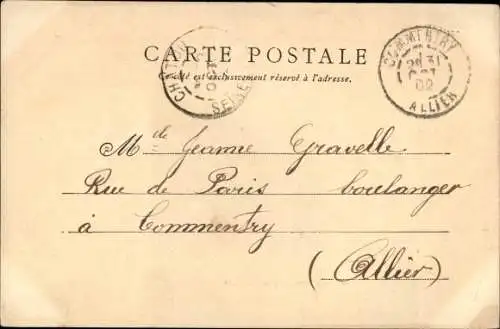 CARTE POSTALE
Ce côté est exclusivement réservé à l'adresse.
COMMENTRY
31
OCT
02
ALLIER
SEINE
Mlle Jeanne Gravelle
Rue de Paris boulanger
à Commentry
(Allier)